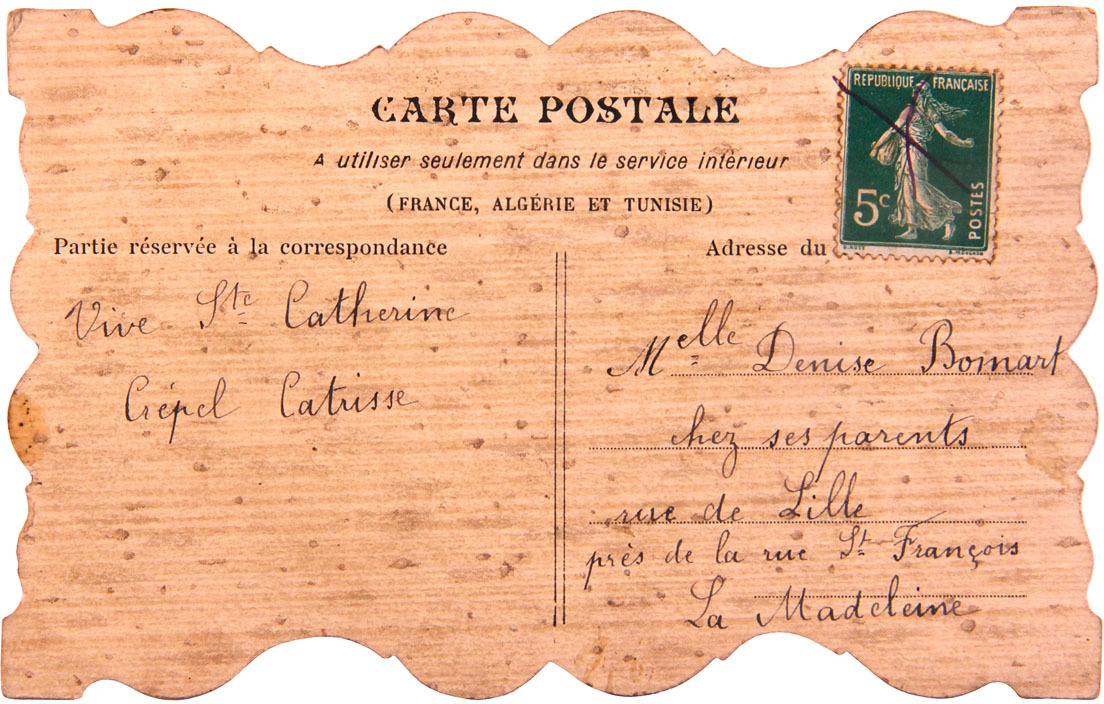 CARTE POSTALE
A utiliser seulement dans le service intérieur
(FRANCE, ALGÉRIE ET TUNISIE)
REPUBLIQUE FRANÇAISE
5c
POSTES
Partie réservée à la correspondance
Vive Ste Catherine
Crépel Catrisse
Adresse du
Melle Denise Bomart
chez ses parents
rue de Lille
près de la rue St François
La Madeleine